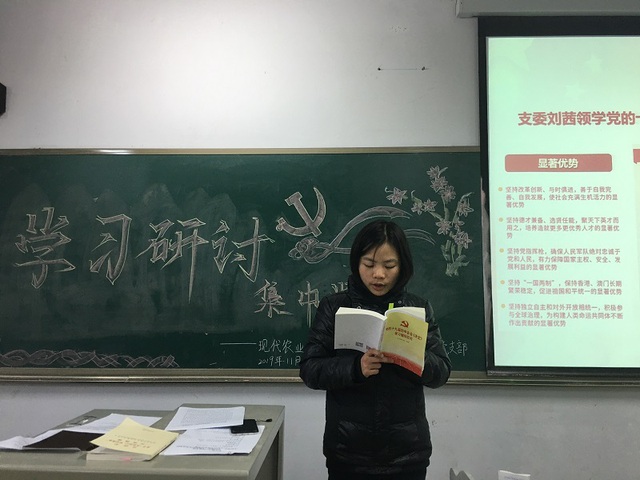 学习研讨
集中
——现代农业
支部
2019年11月
支委刘茜领学党的
显著优势
坚持改革创新、与时俱进，善于自我完
善、自我发展，使社会充满生机活力的显
著优势
坚持德才兼备、选贤任能，聚天下英才而
用之，培养造就更多更优秀人才的显著优
势
坚持党指挥枪，确保人民军队绝对忠诚于
党和人民，有力保障国家主权、安全、发
展利益的显著优势
坚持“一国两制”，保持香港、澳门长期
繁荣稳定，促进祖国和平统一的显著优势
坚持独立自主和对外开放相统一，积极参
与全球治理，为构建人类命运共同体不断
作出贡献的显著优势